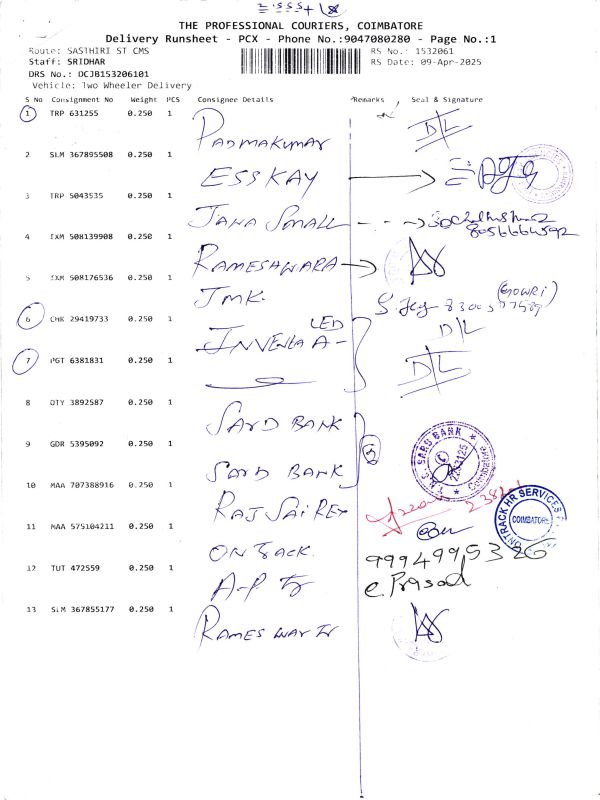 THE PROFESSIONAL COURIERS, COIMBATORE
Delivery Runsheet - PCX - Phone No.:9047080280 - Page No.:1
Route: SASTHIRI ST CMS RS No.: 1532061
Staff: SRIDHAR RS Date: 09-Apr-2025
DRS No.: DCJB153206101
Vehicle: Two Wheeler Delivery
S No Consignment No Weight PCS Consignee Details Remarks Seal & Signature
1 TRP 631255 0.250 1 PADMAKUMAR D/L
2 SLM 367895508 0.250 1 ESSKAY
3 TRP 5043535 0.250 1 JANA SMALL
4 IXM 508139908 0.250 1 RAMESHWARA
5 IXM 508176536 0.250 1 JMK. (GOWRI)
6 CHK 29419733 0.250 1 LED D/L
7 PGT 6381831 0.250 1 D/L
8 OTY 3892587 0.250 1 SARD BANK
9 GDR 5395092 0.250 1 SARD BANK
10 MAA 707388916 0.250 1 RAJ SAI REY
11 MAA 575104211 0.250 1 ON TRACK.
12 TUT 472559 0.250 1 A-P
13 SLM 367855177 0.250 1
COIMBATORE
9994995326
C. Prasad